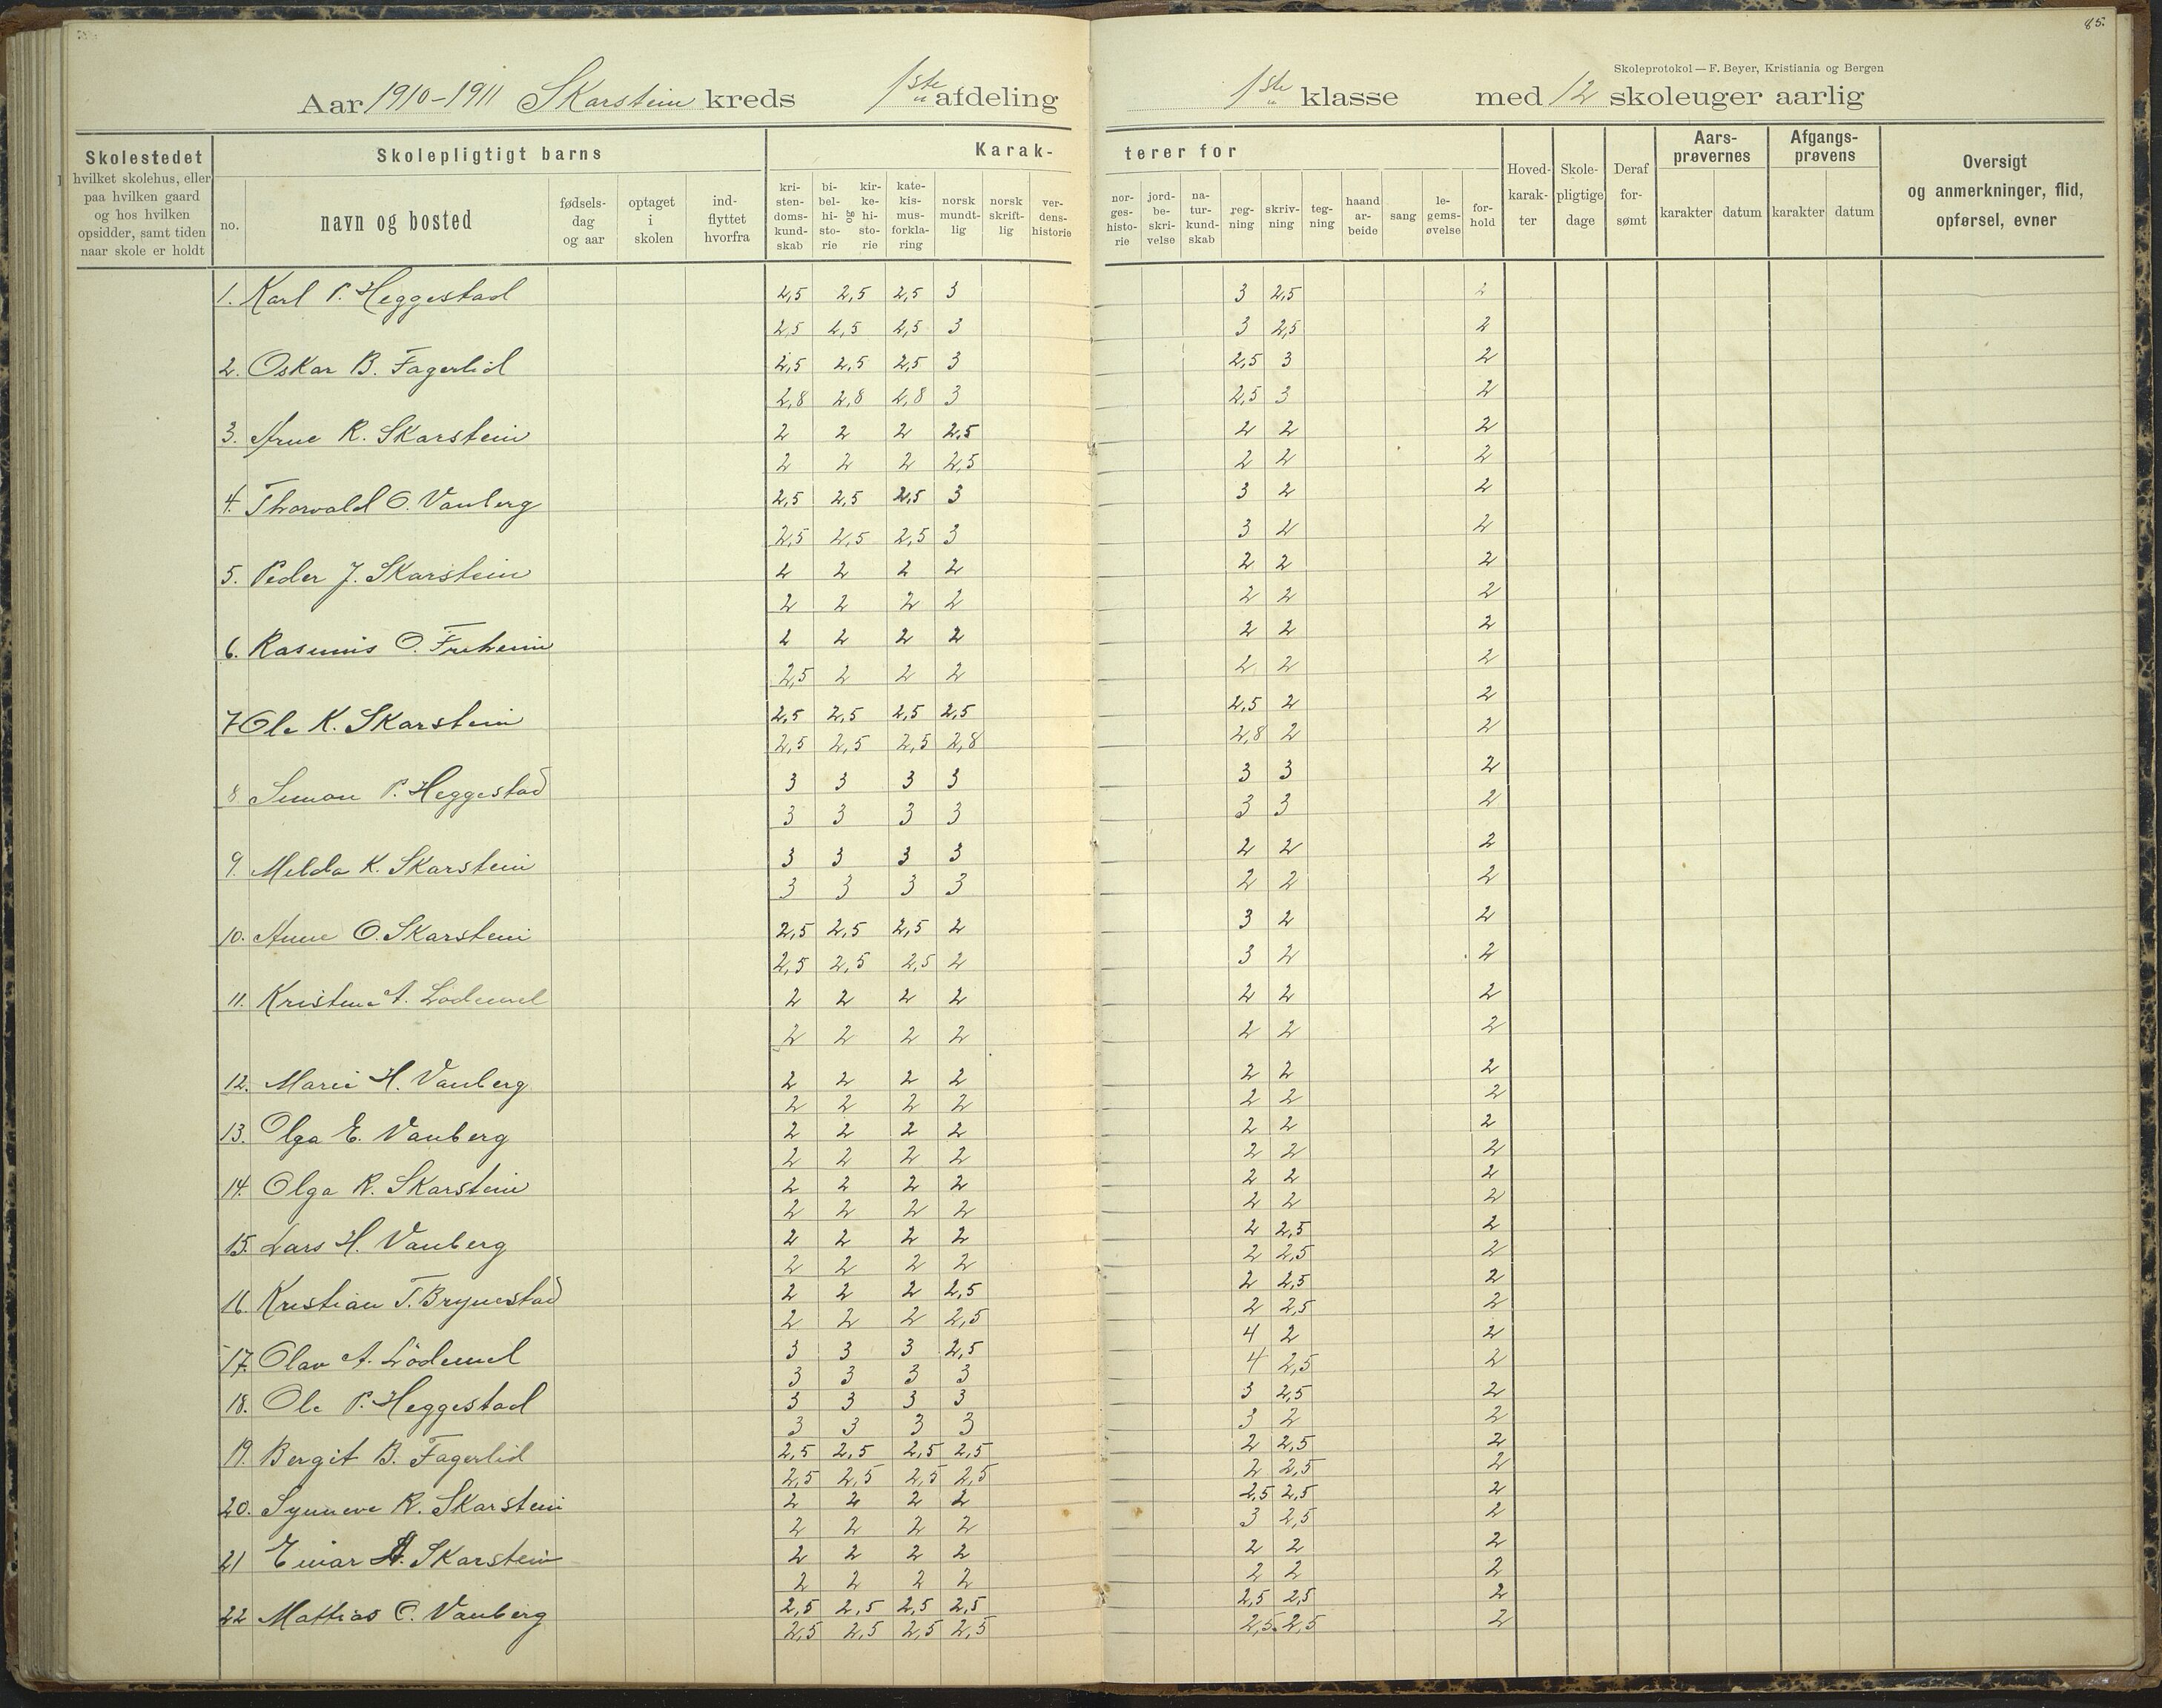 85.
Skoleprotokol — F. Beyer, Kristiania og Bergen
Aar 1910-1911 Skarstein kreds 1ste afdeling 1ste klasse med 12 skoleuger aarlig
Skolestedet hvilket skolehus, eller paa hvilken gaard og hos hvilken opsidder, samt tiden naar skole er holdt
Skolepligtigt barns
no. navn og bosted fødsels-dag og aar optaget i skolen ind-flyttet hvorfra
Karak-terer for
kri-sten-doms-kund-skab bi-bel-hi-sto-rie og kir-ke-hi-sto-rie kate-kis-mus-forkla-ring norsk mundt-lig norsk skrift-lig ver-dens-historie nor-ges-histo-rie jord-be-skri-velse na-tur-kund-skab reg-ning skriv-ning teg-ning haand ar-beide sang le-gems-øvelse for-hold
Hoved-karak-ter Skole-pligtige dage Deraf for-sømt
Aars-prøvernes karakter datum
Afgangs-prøvens karakter datum
Oversigt og anmerkninger, flid, opførsel, evner
1. Karl P. Heggestad 2,5 2,5 2,5 3 3 2,5 2
2,5 2,5 2,5 3 3 2,5 2
2. Oskar B. Fagerlid 2,5 2,5 2,5 3 2,5 3 2
2,8 2,8 2,8 3 2,5 3 2
3. Arne R. Skarstein 2 2 2 2,5 2 2 2
2 2 2 2,5 2 2 2
4. Thorvald O. Vanberg 2,5 2,5 2,5 3 3 2 2
2,5 2,5 2,5 3 3 2 2
5. Peder J. Skarstein 2 2 2 2 2 2 2
2 2 2 2 2 2 2
6. Rasmus O. 2 2 2 2 2 2 2
2,5 2 2 2 2 2 2
7 Ole K. Skarstein 2,5 2,5 2,5 2,5 2,5 2 2
2,5 2,5 2,5 2,8 2,8 2 2
8. Simon P. Heggestad 3 3 3 3 3 3 2
3 3 3 3 3 3 2
9. Milda K. Skarstein 3 3 3 3 2 2 2
3 3 3 3 2 2 2
10. Anne O. Skarstein 2,5 2,5 2,5 2 3 2 2
2,5 2,5 2,5 2 3 2 2
11. Kristine A. Lødemel 2 2 2 2 2 2 2
2 2 2 2 2 2 2
12. Marie H. Vanberg 2 2 2 2 2 2 2
2 2 2 2 2 2 2
13. Olga E. Vanberg 2 2 2 2 2 2 2
2 2 2 2 2 2 2
14. Olga R. Skarstein 2 2 2 2 2 2 2
2 2 2 2 2 2 2
15. Lars H. Vanberg 2 2 2 2 2 2,5 2
2 2 2 2 2 2,5 2
16. Kristian T. Brynestad 2 2 2 2,5 2 2,5 2
2 2 2 2,5 2 2,5 2
17. Olav A. Lödemel 3 3 3 2,5 4 2 2
3 3 3 3 4 2,5 2
18. Ole P. Heggestad 3 3 3 3 3 2,5 2
3 3 3 3 3 2 2
19. Bergit B. Fagerlid 2,5 2,5 2,5 2,5 2 2,5 2
2,5 2,5 2,5 2,5 2 2,5 2
20. Synneve R. Skarstein 2 2 2 2 2,5 2,5 2
2 2 2 2 3 2,5 2
21 Einar A. Skarstein 2 2 2 2 2 2 2
2 2 2 2 2 2 2
22 Mathias O. Vanberg 2,5 2,5 2,5 2,5 2,5 2,5 2
2,5 2,5 2,5 2,5 2,5 2,5 2